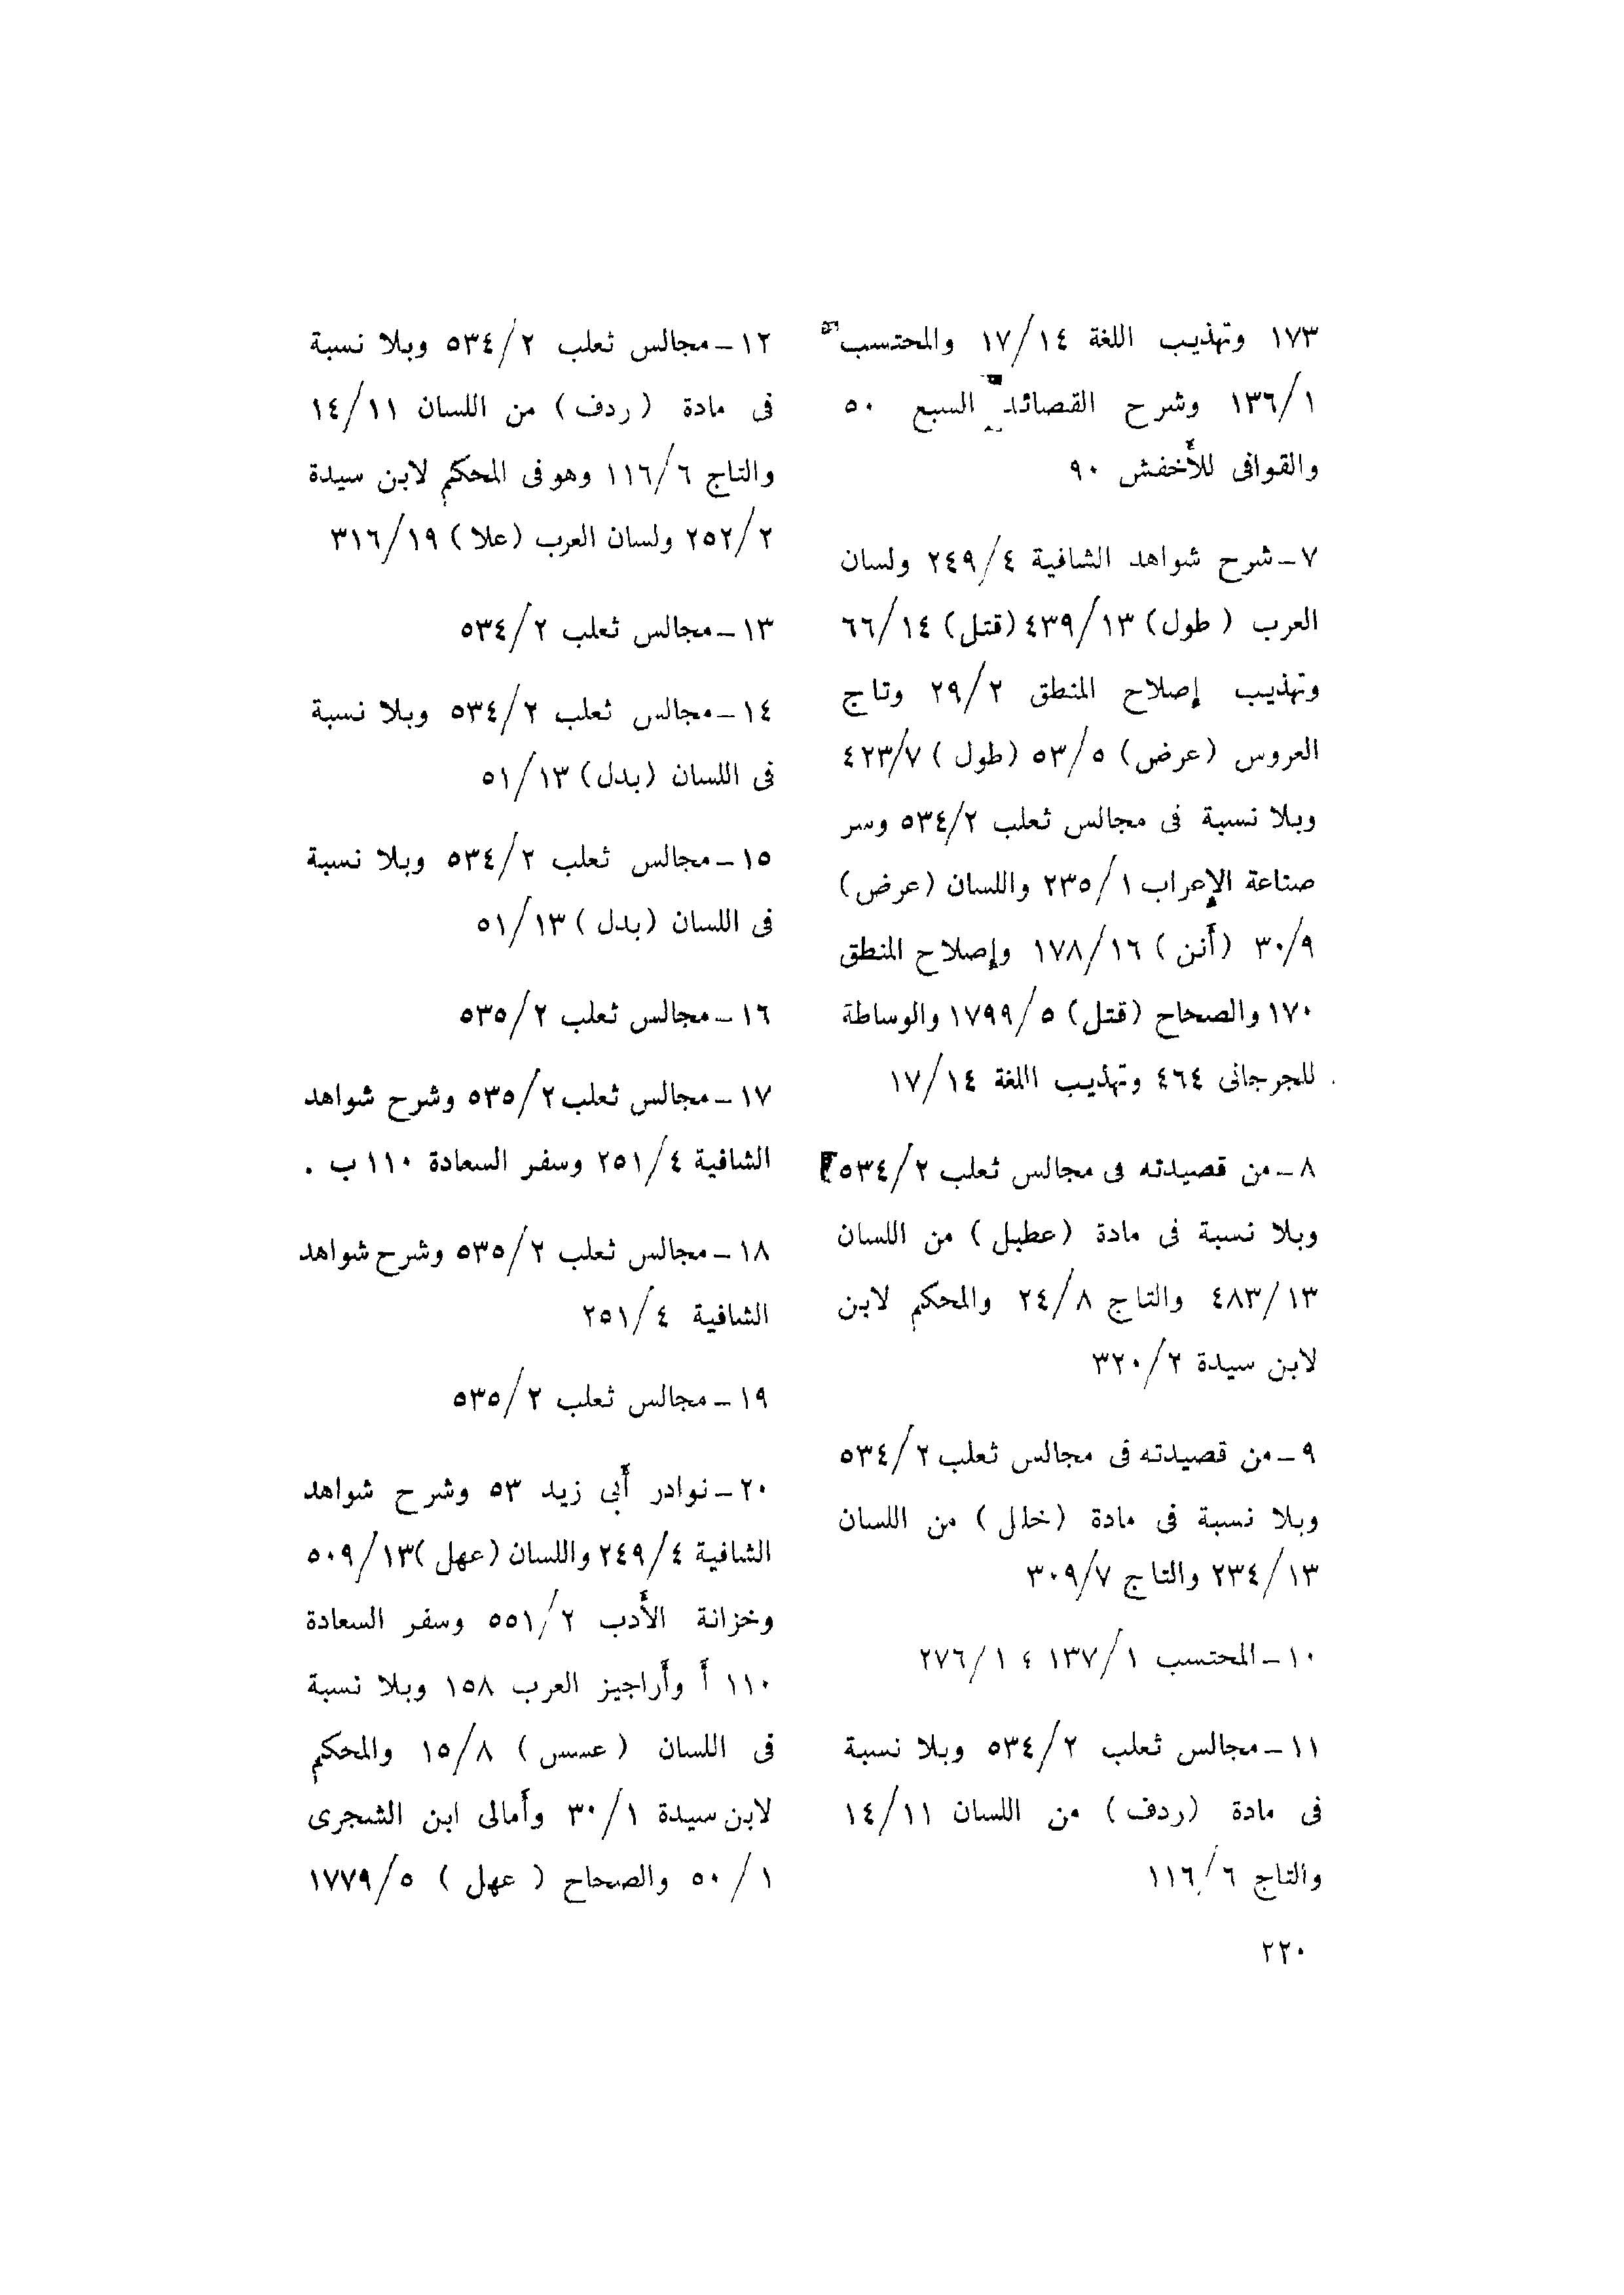 ١٧٣ وتهذيب اللغة ١٧/١٤ والمحتسب
١٣٦/١ وشرح القصائد السبع ٥٠
والقوافى للأخفش ٩٠
٧ـ شرح شواهد الشافية ٢٤٩/٤ ولسان
العرب (طول) ٤٣٩/١٣ (قتل) ٦٦/١٤
وتهذيب إصلاح المنطق ٢٩/٢ وتاج
العروس (عرض) ٥٣/٥ (طول) ٤٢٣/٧
وبلا نسبة فى مجالس ثعلب ٥٣٤/٢ وسر
صناعة الإعراب ٢٣٥/١ واللسان (عرض)
٣٠/٩ (أنن) ١٧٨/١٦ وإصلاح المنطق
١٧٠ والصحاح (قتل) ١٧٩٩/٥ والوساطة
للجرجانى ٤٦٤ وتهذيب االلغة ١٧/١٤
٨ـ من قصيدته فى مجالس ثعلب ٥٣٤/٢
وبلا نسبة فى مادة (عطبل) من اللسان
٤٨٣/١٣ والتاج ٢٤/٨ والمحكم لابن
لابن سيدة ٣٢٠/٢
٩ـ من قصيدته فى مجالس ثعلب ٥٣٤/٢
وبلا نسبة فى مادة (خلل) من اللسان
٢٣٤/١٣ والتاج ٣٠٩/٧
١٠ـ المحتسب ١٣٧/١ ؛ ٢٧٦/١
١١ـ مجالس ثعلب ٥٣٤/٢ وبلا نسبة
فى مادة (ردف) من اللسان ١٤/١١
والتاج ١١٦/٦
١٢ـ مجالس ثعلب ٥٣٤/٢ وبلا نسبة
فى مادة (ردف) من اللسان ١٤/١١
والتاج ١١٦/٦ وهو فى المحكم لابن سيدة
٢٥٢/٢ ولسان العرب (علا) ٣١٦/١٩
١٣ـ مجالس ثعلب ٥٣٤/٢
١٤ـ مجالس ثعلب ٥٣٤/٢ وبلا نسبة
فى اللسان (بدل) ٥١/١٣
١٥ـ مجالس ثعلب ٥٣٤/٢ وبلا نسبة
فى اللسان (بدل) ٥١/١٣
١٦ـ مجالس ثعلب ٥٣٥/٢
١٧ـ مجالس ثعلب ٥٣٥/٢ وشرح شواهد
الشافية ٢٥١/٤ وسفر السعادة ١١٠ ب .
١٨ـ مجالس ثعلب ٥٣٥/٢ وشرح شواهد
الشافية ٢٥١/٤
١٩ـ مجالس ثعلب ٥٣٥/٢
٢٠ـ نوادر أبى زيد ٥٣ وشرح شواهد
الشافية ٢٤٩/٤ واللسان (عهل) ٥٠٩/١٣
وخزانة الأدب ٥٥١/٢ وسفر السعادة
١١٠ أ وأراجيز العرب ١٥٨ وبلا نسبة
فى اللسان (عسس) ١٥/٨ والمحكم
لابن سيدة ٣٠/١ وأمالى ابن الشجرى
٥٠/١ والصحاح (عهل) ١٧٧٩/٥
٢٢٠